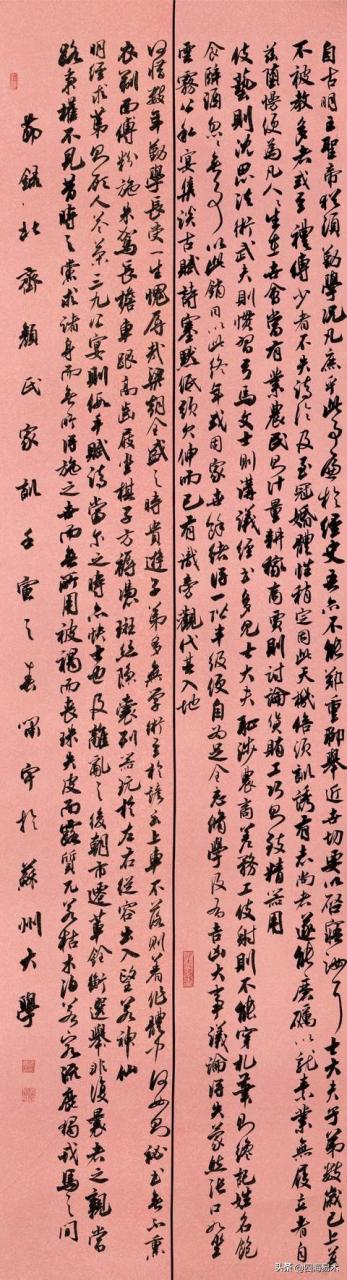 自古明王聖帝猶須勤學況凡庶乎此事遍於經史吾亦不能鄭重聊舉近世切要以啓寤汝耳士大夫子弟數歲已上莫
不被教多者或至禮傳少者不失詩論及至冠婚體性稍定因此天機倍須訓誘有志尚者遂能磨礪以就素業無履立者自
茲墮慢便為凡人人生在世會當有業農民則計量耕稼商賈則討論貨賄工巧則致精器用
伎藝則沈思法術武夫則慣習弓馬文士則講議經書多見士大夫恥涉農商差務工伎射則不能穿札筆則纔記姓名飽
食醉酒忽忽無事以此銷日以此終年或因家世餘緒得一階半級便自為足全忘修學及有吉凶大事議論得失蒙然張口如坐
雲霧公私宴集談古賦詩塞默低頭欠伸而已有識旁觀代其入地
何惜數年勤學長受一生愧辱哉梁朝全盛之時貴遊子弟多無學術至於諺云上車不落則著作體中何如則秘書無不熏
衣剃面傅粉施朱駕長檐車跟高齒屐坐棋子方褥憑斑絲隱囊列器玩於左右從容出入望若神仙
明經求第則顧人答策三九公宴則假手賦詩當爾之時亦快士也及離亂之後朝市遷革銓衡選舉非復曩者之親當
路秉權不見昔時之黨求諸身而無所得施之世而無所用被褐而喪珠失皮而露質兀若枯木泊若窮流鹿獨戎馬之間
節錄北齊顏氏家訓壬寅之春於蘇州大學
头条 @四海易木